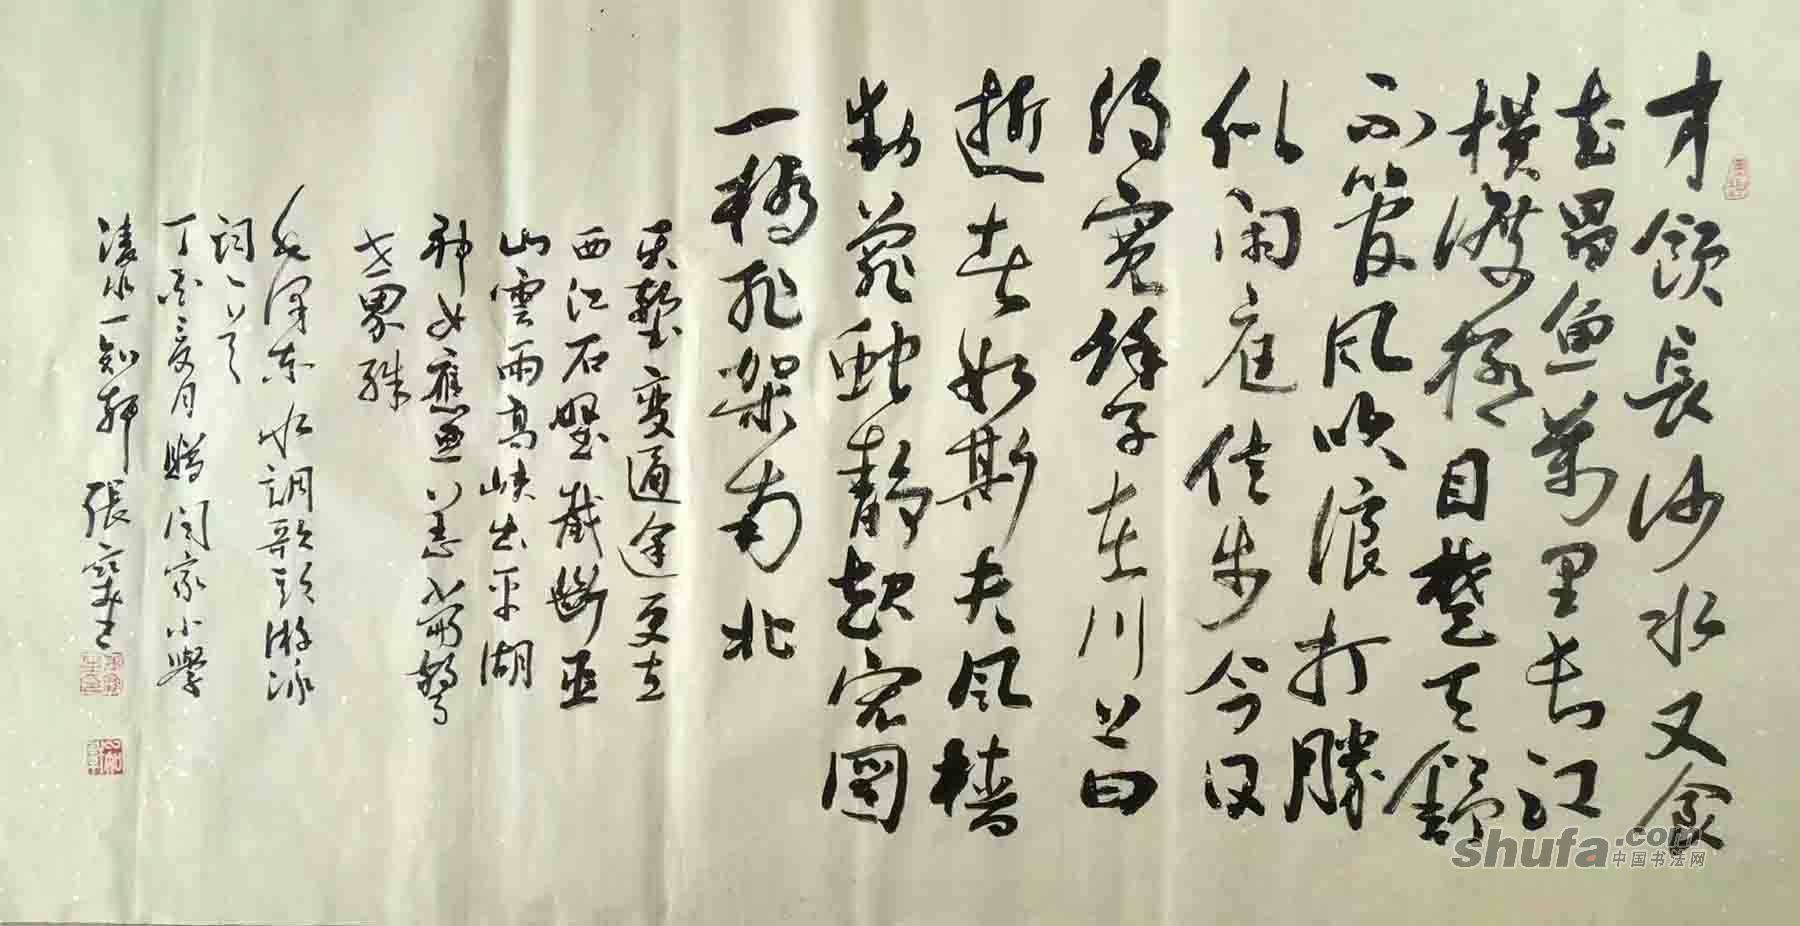 才飲長沙水又食
武昌魚萬里长江
橫渡極目楚天舒
不管风吹浪打勝
似闲庭信步今日
得寬餘子在川上曰
逝者如斯夫风檣
動龜蛇靜起宏圖
一橋飛架南北
天塹變通途更立
西江石壁截斷巫
山雲雨高峽出平湖
神女應無恙當驚
世界殊
毛澤东水調歌頭游泳
詞一首
丁酉夏月贈闫家小學
凌水一知軒張
shufa.com
中国书法网